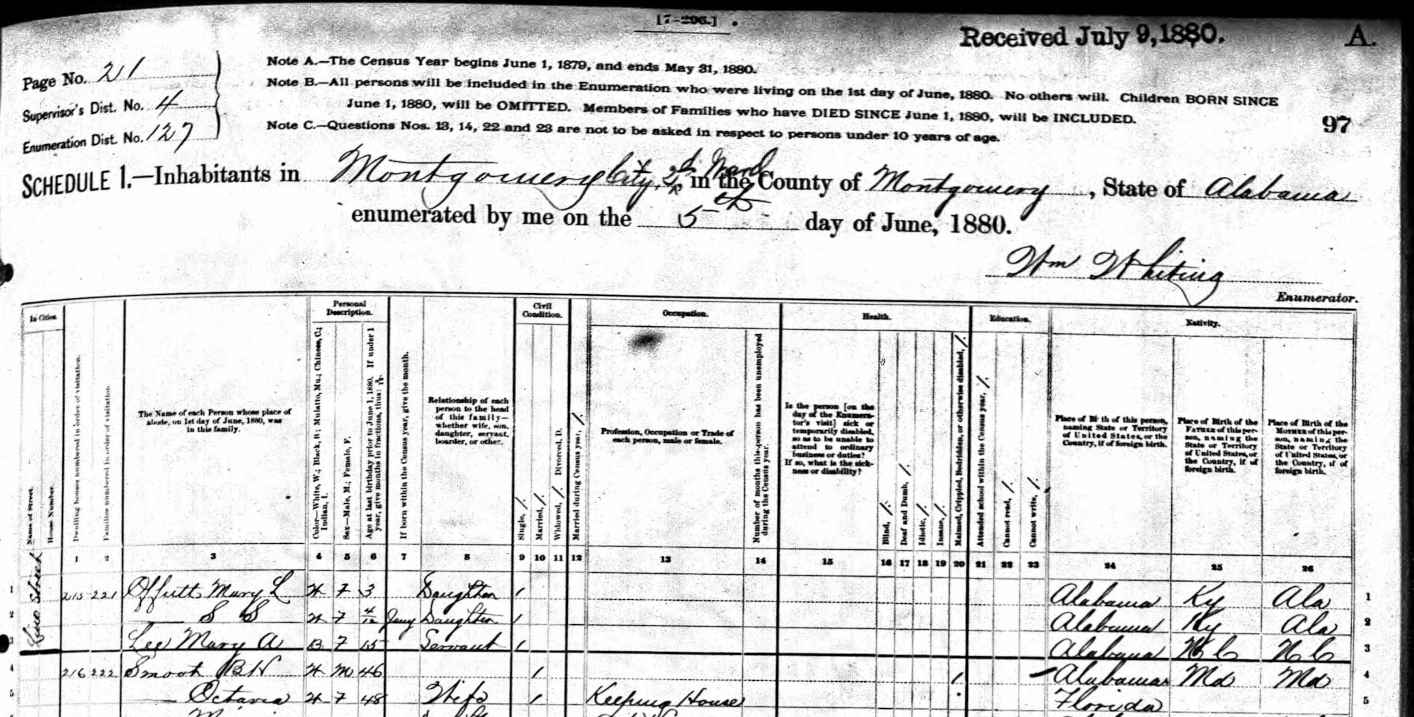 [7-296.]
Received July 9, 1880.
A.
Page No. 21
Supervisor's Dist. No. 4
Enumeration Dist. No. 127
Note A.—The Census Year begins June 1, 1879, and ends May 31, 1880.
Note B.—All persons will be included in the Enumeration who were living on the 1st day of June, 1880. No others will. Children BORN SINCE
June 1, 1880, will be OMITTED. Members of Families who have DIED SINCE June 1, 1880, will be INCLUDED.
Note C.—Questions Nos. 13, 14, 22 and 23 are not to be asked in respect to persons under 10 years of age.
97
SCHEDULE 1.—Inhabitants in Montgomery City, 2d Ward in the County of Montgomery, State of Alabama
enumerated by me on the 5th day of June, 1880.
Wm Whiting
Enumerator.
In Cities.
Name of Street.
House Number.
Dwelling houses numbered in order of visitation.
Families numbered in order of visitation.
The Name of each Person whose place of
abode, on 1st day of June, 1880, was
in this family.
Personal
Description.
Color—White, W.; Black, B.; Mulatto, Mu.; Chinese, C.;
Indian, I.
Sex—Male, M.; Female, F.
Age at last birthday prior to June 1, 1880. If under 1
year, give months in fractions, thus: 3/12.
If born within the Census year, give the month.
Relationship of each
person to the head
of this family—
whether wife, son,
daughter, servant,
boarder, or other.
Civil
Condition.
Single, /.
Married, /.
Widowed, /. Divorced, D.
Married during Census year, /.
Occupation.
Profession, Occupation or Trade of
each person, male or female.
Number of months this person has been unemployed
during the Census year.
Health.
Is the person [on the
day of the Enumera-
tor's visit] sick or
temporarily disabled,
so as to be unable to
attend to ordinary
business or duties?
If so, what is the sick-
ness or disability?
Blind, /.
Deaf and Dumb, /.
Idiotic, /.
Insane, /.
Maimed, Crippled, Bedridden, or otherwise disabled, /.
Education.
Attended school within the Census year, /.
Cannot read, /.
Cannot write, /.
Nativity.
Place of Birth of this person,
naming State or Territory
of United States, or the
Country, if of foreign birth.
Place of Birth of the
FATHER of this per-
son, naming the
State or Territory
of United States, or
the Country, if of
foreign birth.
Place of Birth of the
MOTHER of this per-
son, naming the
State or Territory
of United States, or
the Country, if of
foreign birth.
1 2 3 4 5 6 7 8 9 10 11 12 13 14 15 16 17 18 19 20 21 22 23 24 25 26
Street
1 215 221 Offutt Mary L W F 3 Daughter / Alabama Ky Ala 1
2 — S S W F 4/12 Jany Daughter / Alabama Ky Ala 2
3 Lee Mary A B F 15 Servant / Alabama N C N C 3
4 216 222 Smoot B H W M 46 / / Alabama Md Md 4
5 — Octavia W F 48 Wife / Keeping House Florida 5